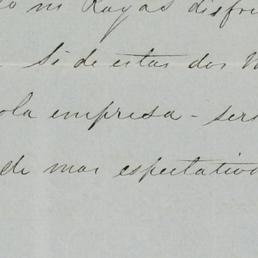 ni Rayas disfr
si de estas dos
ola empresa - ser
de mas espectativ